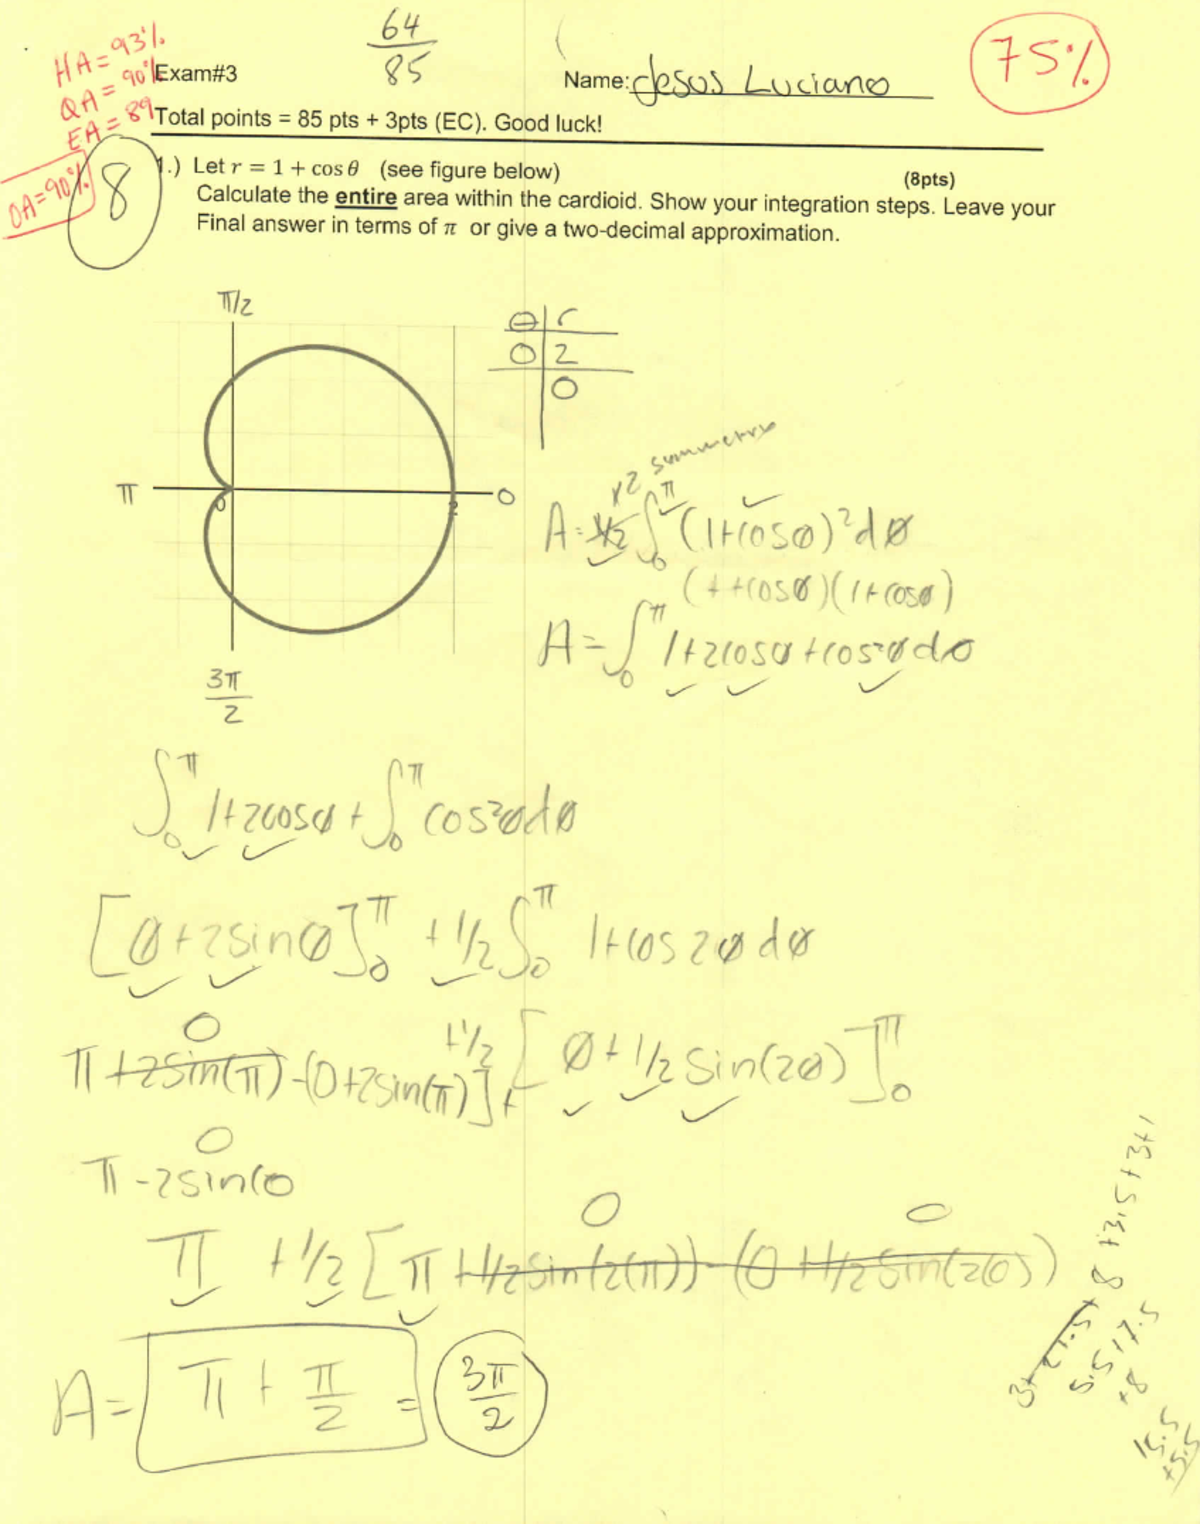 64/85
HA = 93%
QA = 90%
EA = 89
OA = 90%
75%
Exam#3
Name: Jesus Luciano
Total points = 85 pts + 3pts (EC). Good luck!
8
1.) Let r = 1 + cos θ (see figure below) (8pts)
Calculate the entire area within the cardioid. Show your integration steps. Leave your
Final answer in terms of π or give a two-decimal approximation.
π/2
θ | r
0 | 2
0
π
0
0
2
3π/2
x2 symmetry
A = 1/2 ∫₀^π (1+cosθ)²dθ
(1+cosθ)(1+cosθ)
A = ∫₀^π 1+2cosθ+cos²θdθ
∫₀^π 1+2cosθ + ∫₀^π cos²θdθ
[θ+2sinθ]₀^π + 1/2 ∫₀^π 1+cos2θdθ
0
π+2sin(π)-(0+2sin(π)] + 1/2 [θ+1/2 sin(2θ)]₀^π
0
π-2sin(0
0 0
π + 1/2 [π+1/2sin(2(π))-(0+1/2sin(2(0))
A = π + π/2 = 3π/2
+8+3.5+3+1
5.5+7.5
+8
15.5
+5.5